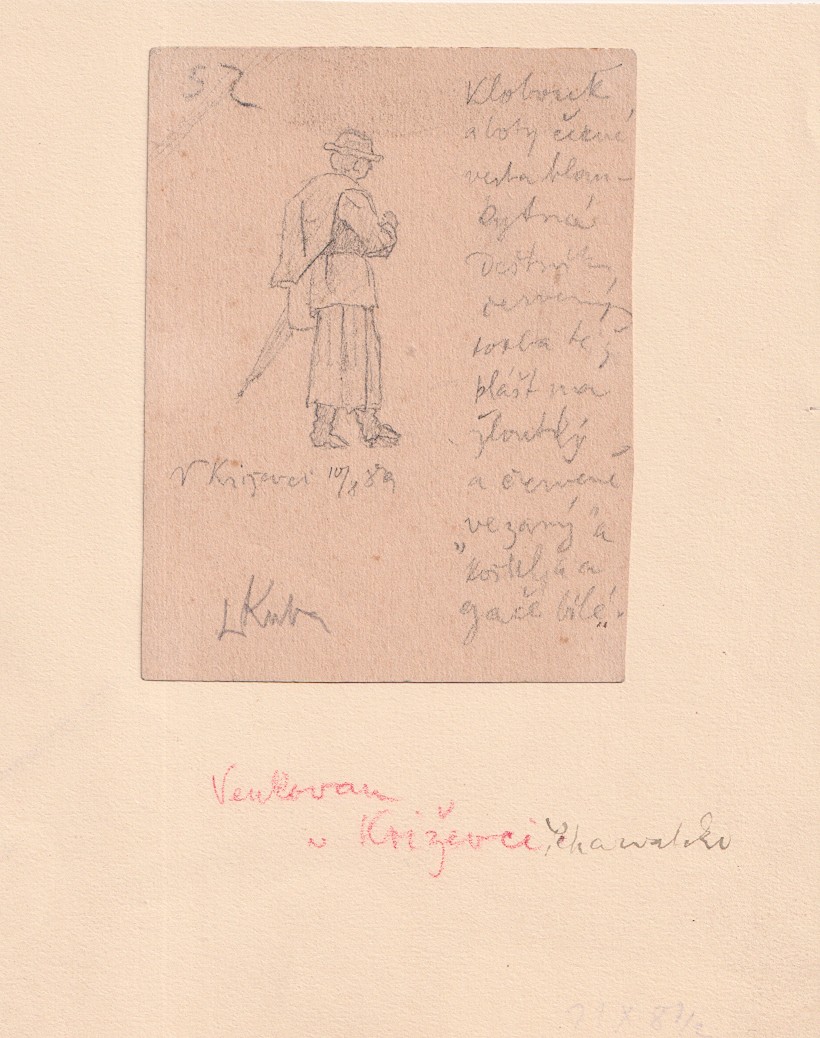 52
Klobouk
a boty černé
vesta blan-
kytná
Deštník
červený
torba též
plášť na
žloutký
a červeně
vezaný a
„košulja a
gaće bílé“.
V Križevci 10/X 89
LKuba
Venkovan
v Križevci, Charvatsko